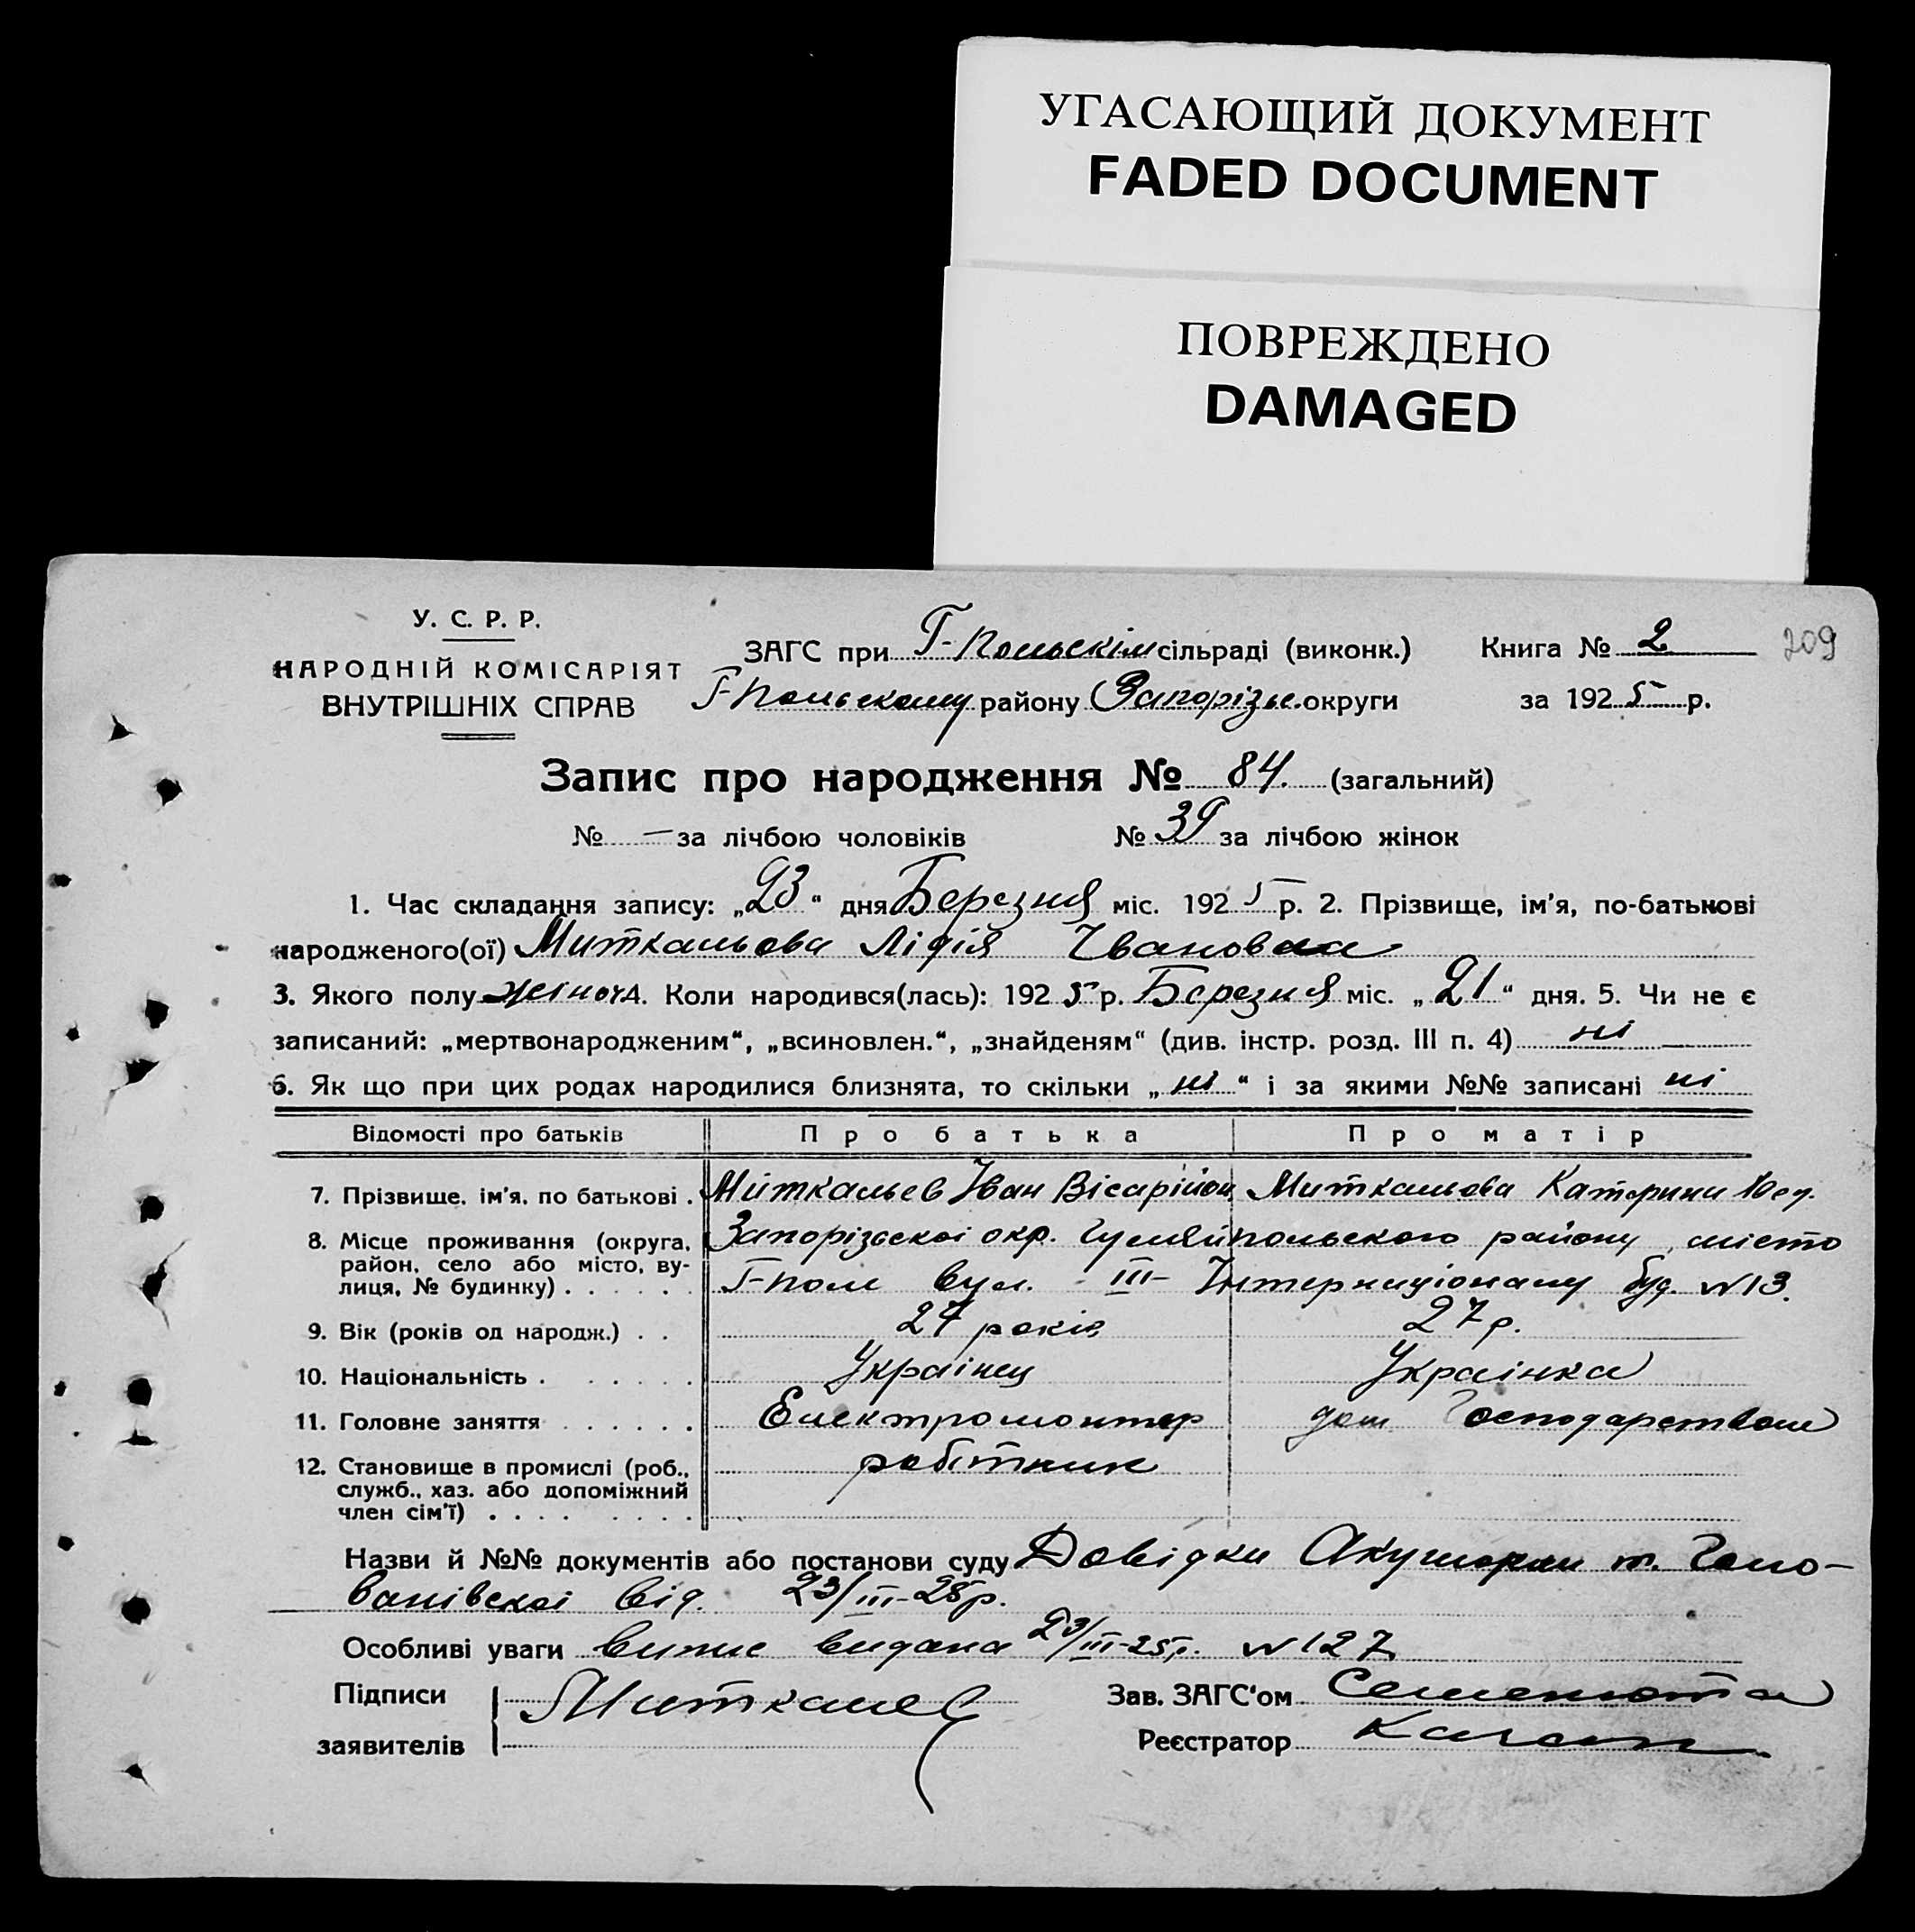 УГАСАЮЩИЙ ДОКУМЕНТ
FADED DOCUMENT
ПОВРЕЖДЕНО
DAMAGED
У. С. Р. Р.
НАРОДНІЙ КОМІСАРІЯТ
ВНУТРІШНІХ СПРАВ
ЗАГС при Г-Польскім сільраді (виконк.) Книга № 2 209
Г-Польскому району Запорізьс. округи за 1925 р.
Запис про народження № 84. (загальний)
№ — за лічбою чоловіків № 39 за лічбою жінок
1. Час складання запису: „23“ дня Березня міс. 1925 р. 2. Прізвище, ім'я, по-батькові
народженого(ої) Миткальова Лідія Ивановна
3. Якого полу жіноч. 4. Коли народився(лась): 1925 р. Березня міс. „21“ дня. 5. Чи не є
записаний: „мертвонародженим“, „всиновлен.“, „знайденям“ (див. інстр. розд. III п. 4) ні
6. Як що при цих родах народилися близнята, то скільки „ні“ і за якими №№ записані ні
Відомості про батьків Про батька Про матір
7. Прізвище, ім'я, по батькові . Миткальев Іван Вісарійон Миткальова Катерина
8. Місце проживання (округа, район, село або місто, вулиця, № будинку) . . . . . . Запорізьскоі окр. Гуляйпольского району місто
Г-поле вул. III- Інтернаціоналу буд. № 13.
9. Вік (років од народж.) . . 27 років 27 р.
10. Національність . . . . . . Украінец Украінка
11. Головне заняття . . . . . . Електромонтер дом Господарством
12. Становище в промислі (роб., служб., хаз. або допоміжний член сім'ї) . . . . . . . . робітник
Назви й №№ документів або постанови суду Довідки Акушерки т. Голо-
ванівскоі від. 23/III-25р.
Особливі уваги випис видана 23/III-25р. № 127
Підписи Миткалев Зав. ЗАГС'ом Семенюта
заявителів Реєстратор